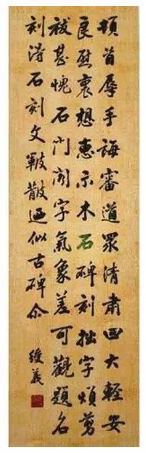 頓首辱手誨審道眾清肅四大輕安
良慰衷想惠示木石碑刻拙字煩剪
祓甚愧石门阁字氣象差可觀題名
刻得石刻文散迺似古碑尒